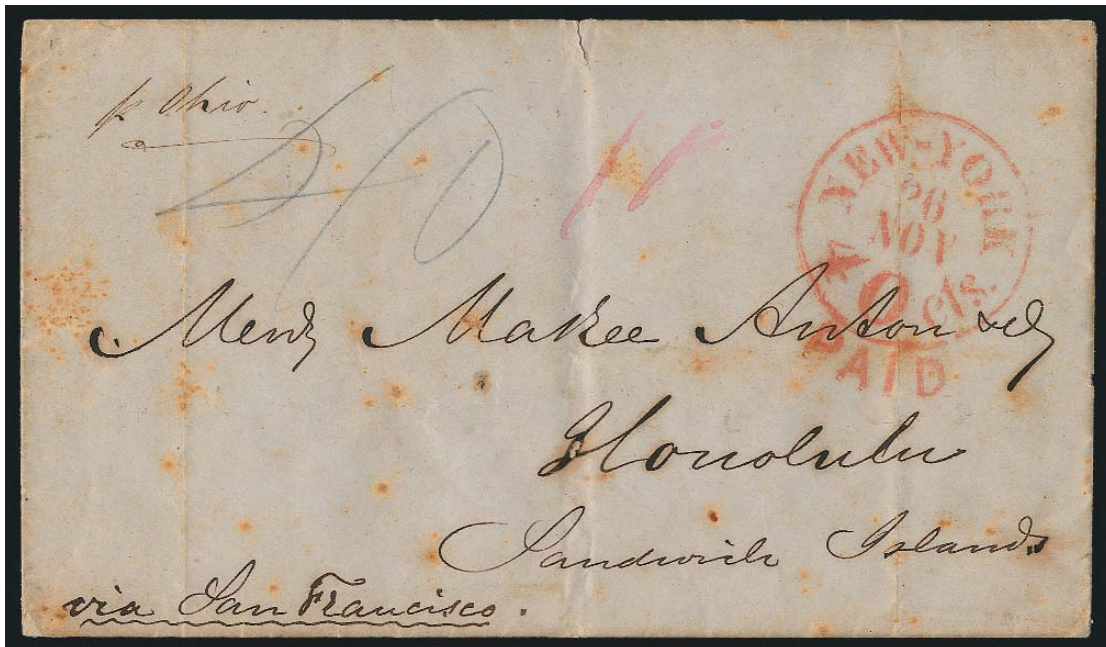 p Ohio.
40
NEW-YORK
26
NOV
40 cts.
PAID
Messrs Makee Anton & Co
Honolulu
Sandwich Islands
via San Francisco.